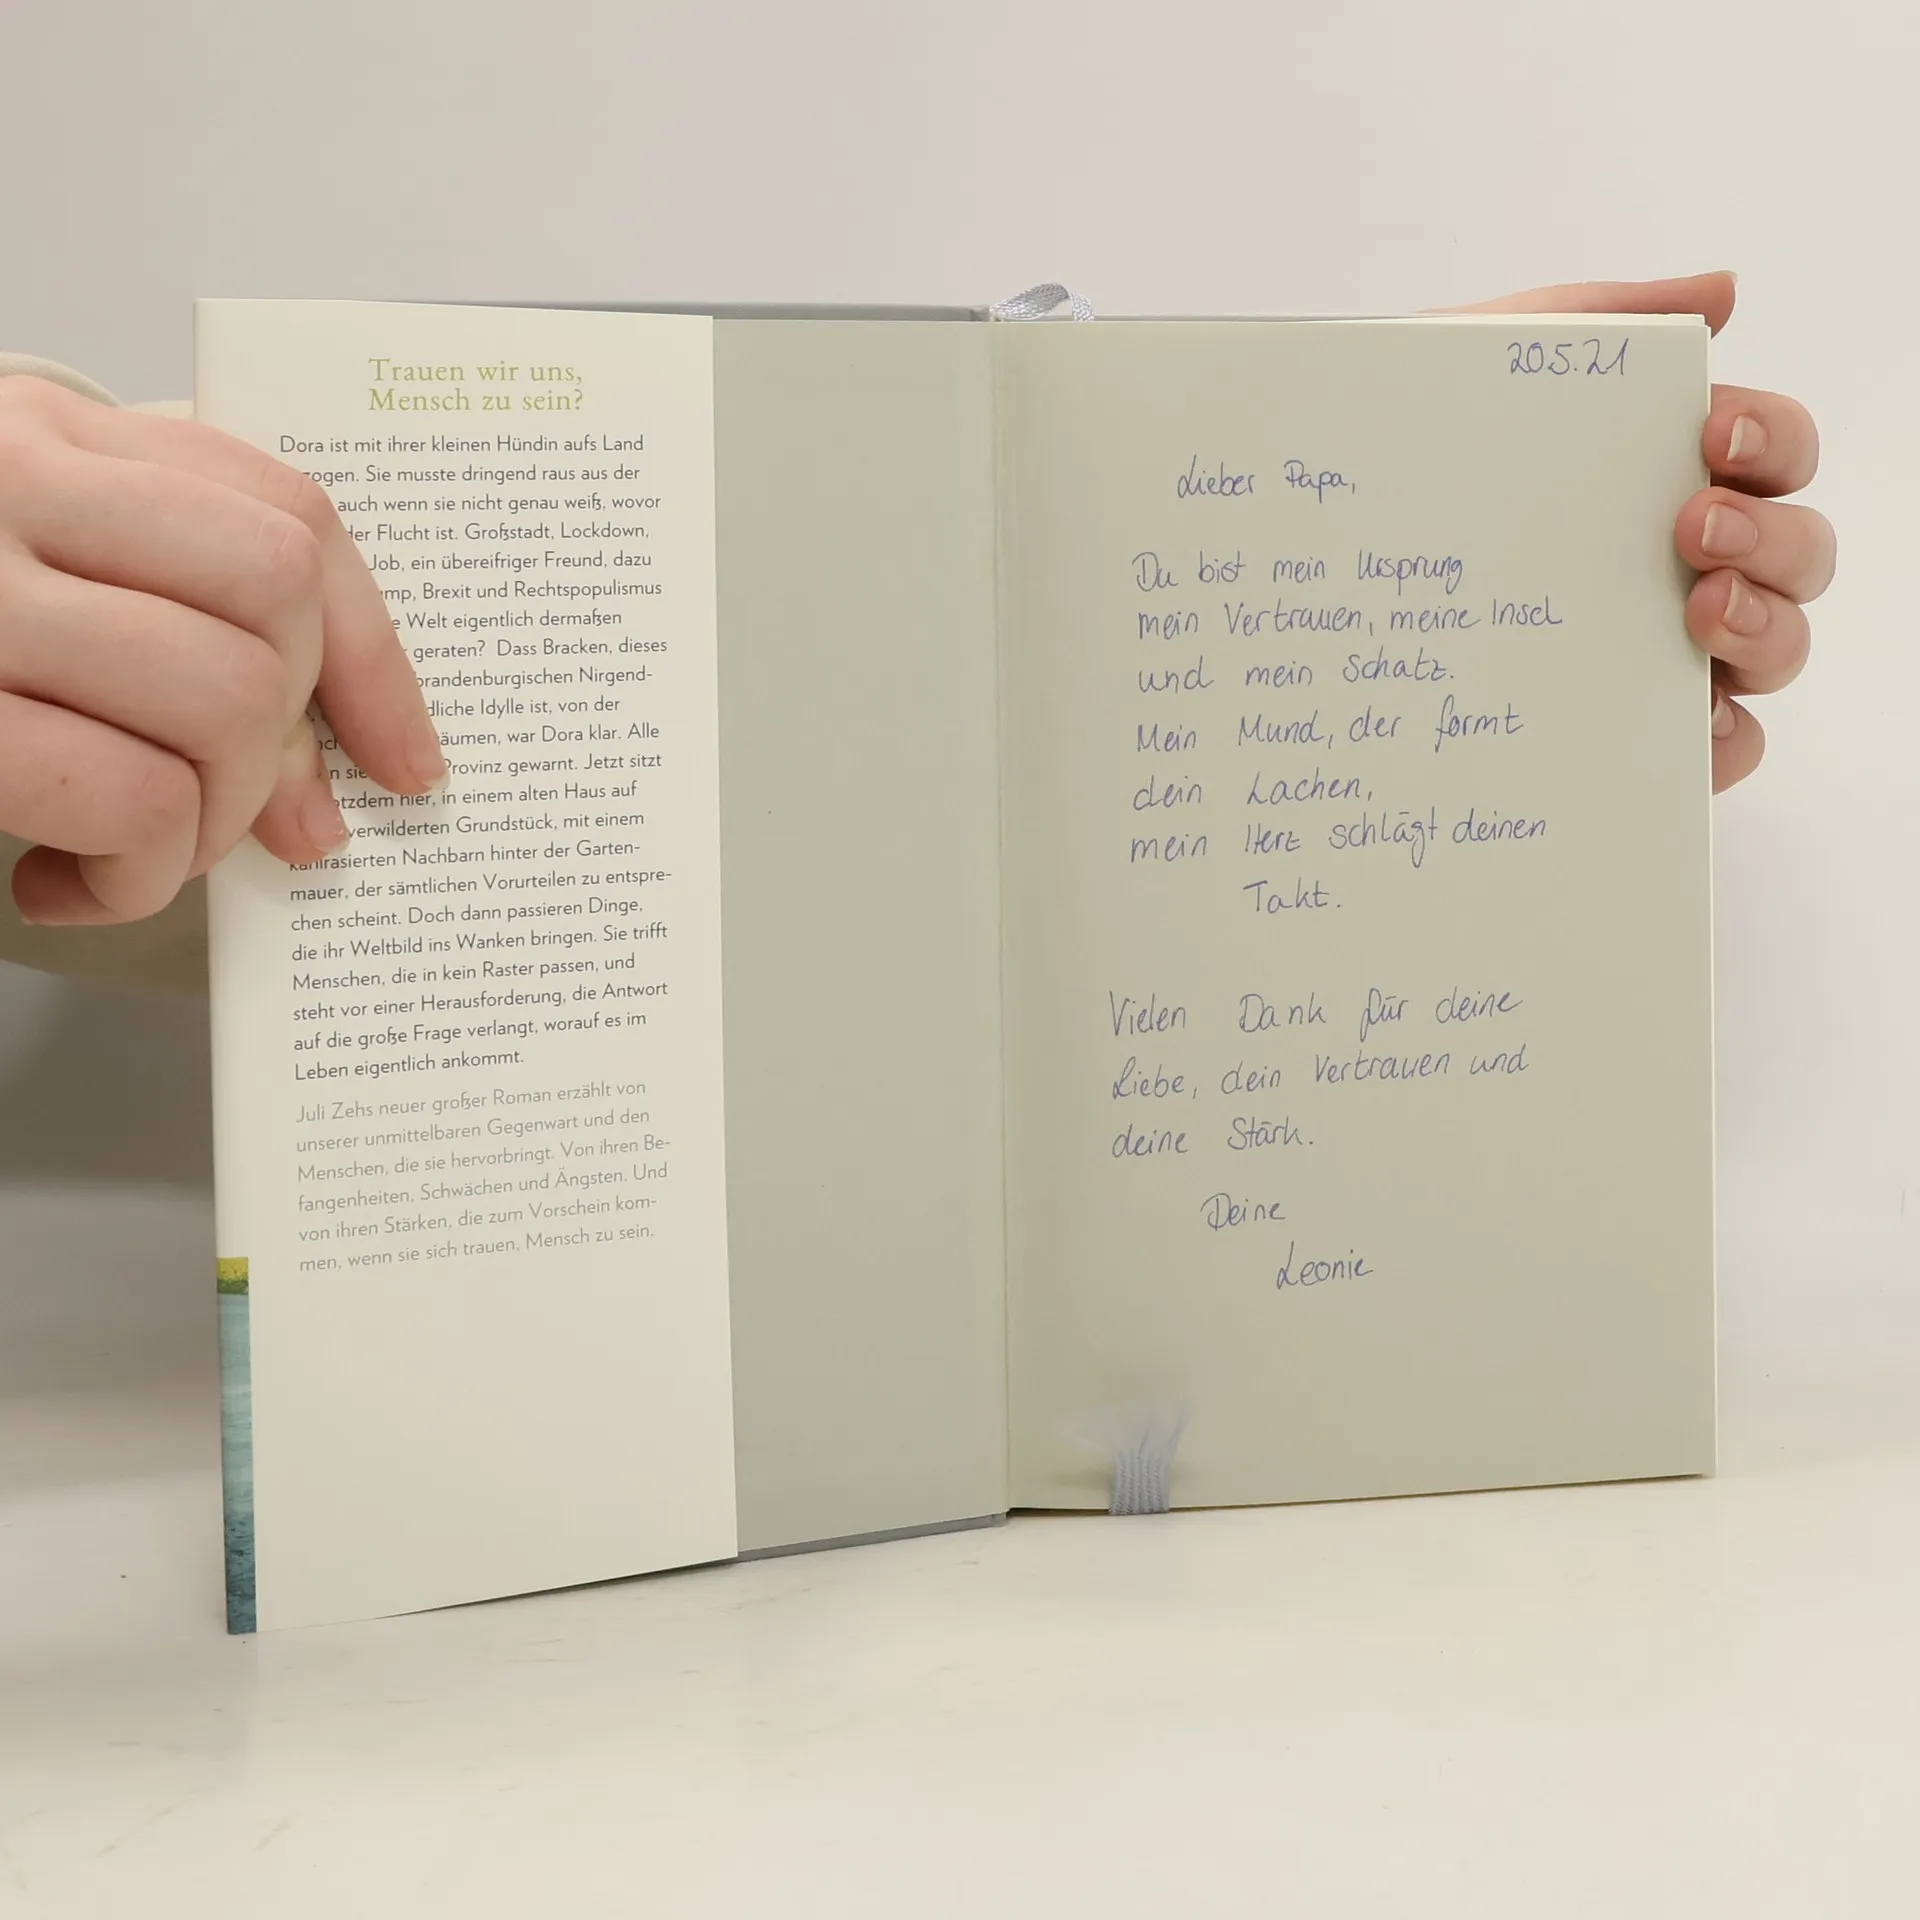 Trauen wir uns,
Mensch zu sein?
Dora ist mit ihrer kleinen Hündin aufs Land
ogen. Sie musste dringend raus aus der
auch wenn sie nicht genau weiß, wovor
der Flucht ist. Großstadt, Lockdown,
Job, ein übereifriger Freund, dazu
ump, Brexit und Rechtspopulismus
e Welt eigentlich dermaßen
geraten? Dass Bracken, dieses
brandenburgischen Nirgend-
dliche Idylle ist, von der
äumen, war Dora klar. Alle
n sie Provinz gewarnt. Jetzt sitzt
otzdem hier, in einem alten Haus auf
verwilderten Grundstück, mit einem
kahlrasierten Nachbarn hinter der Garten-
mauer, der sämtlichen Vorurteilen zu entspre-
chen scheint. Doch dann passieren Dinge,
die ihr Weltbild ins Wanken bringen. Sie trifft
Menschen, die in kein Raster passen, und
steht vor einer Herausforderung, die Antwort
auf die große Frage verlangt, worauf es im
Leben eigentlich ankommt.
Juli Zehs neuer großer Roman erzählt von
unserer unmittelbaren Gegenwart und den
Menschen, die sie hervorbringt. Von ihren Be-
fangenheiten, Schwächen und Ängsten. Und
von ihren Stärken, die zum Vorschein kom-
men, wenn sie sich trauen, Mensch zu sein.
20.5.21
Lieber Papa,
Du bist mein Ursprung
mein Vertrauen, meine Insel
und mein Schatz.
Mein Mund, der formt
dein Lachen,
mein Herz schlägt deinen
Takt.
Vielen Dank für deine
Liebe, dein Vertrauen und
deine Stärk.
Deine
Leonie